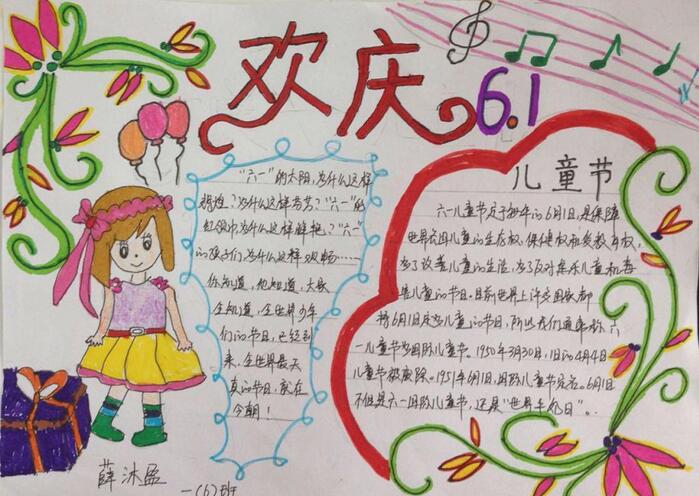 欢庆
6.1
"六一"的太阳,为什么这样
辉煌?为什么这样芬芳?"六一"的
红领巾为什么这样鲜艳?"六一"
的孩子们为什么这样欢畅……
你知道,他知道,大家
全知道,全世界少年
们的节日,已经到
来,全世界最天
真的节日,就在
今朝!
儿童节
六一儿童节定于每年的6月1日,是保障
世界各国儿童的生存权、保健权和受教育权,
为了改善儿童的生活,为了反对虐杀儿童和毒
害儿童的节日。目前世界上许多国家都
将6月1日定为儿童的节日,所以我们通常称六
一儿童节为国际儿童节。1950年3月30日,旧的4月4日
儿童节被废除。1951年6月1日,国际儿童节定为。6月1日
不但是六一国际儿童节,还是"世界牛奶日"。
薛沐盈
一(6)班